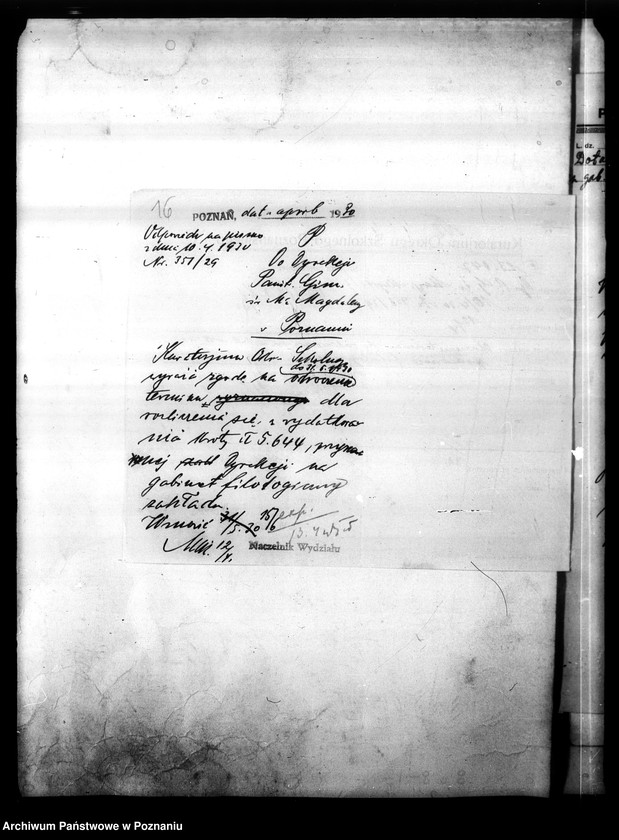 16
POZNAŃ, dat. aprob 1930
Odpowiedź na pismo
z dnia 10.4.1930
Nr. 351/29
Do Dyrekcji
Państ. Gim.
św. M. Magdaleny
w Poznaniu
Kuratorjum Okr. Szkolnego
wyraża zgodę na odroczenie
do 31.5.1930
terminu dla
rozliczenia się z wydatkowania
kwoty zł 5.644, przyznanej
Dyrekcji na
gabinet filologiczny
zakładu.
Wznowić 15/6
5.30
exp.
12/4.
Naczelnik Wydziału
Archiwum Państwowe w Poznaniu